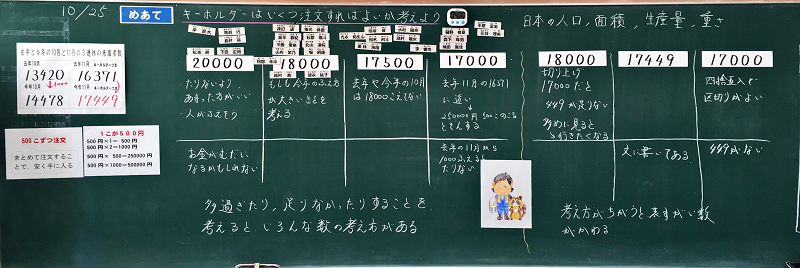 10/25
めあて
キーホルダーはいくつ注文すればよいか考えよう
日本の人口，面積，生産量，重さ
去年と今年の10月と11月の3連休の来園者数
去年10月
13420
去年11月
16371
今年10月
14478
今年11月
17449
500こずつ注文
まとめて注文することで、安く手に入る
1こが500円
500円×1＝ 500円
500円×2＝1000円
500円× 500＝250000円
500円×1000＝500000円
20000
たりないより
あまった方がいい
人がふえそう
お金がむだに
なるかもしれない
18000
もしも今年のふえ方
が大きいことを
考える
17500
去年や今年の10月
は18000こえてない
17000
去年11月の16371
に近い
250000円 500このこる
とそんする
去年の11月から
1000ふえると
たりない
多過ぎたり，足りなかったりすることを
考えると、いろんな数の考え方がある
18000
切り上げ
17000だと
449が足りない
多めに見ると
17449
文に書いてある
17000
四捨五入で
区切りがよい
449がない
考え方がちがうと表すがい数
がかわる